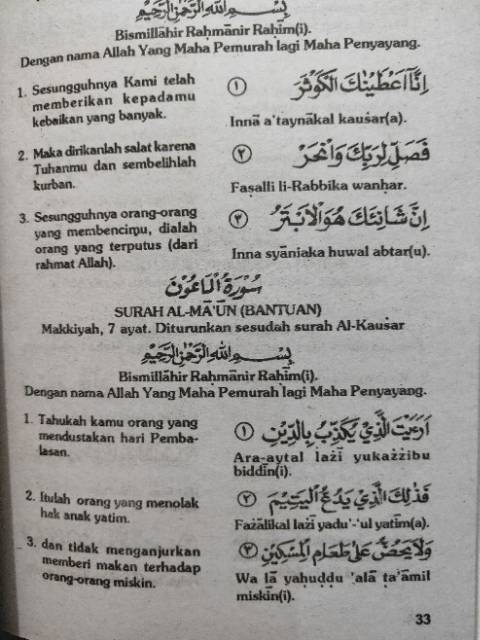 بِسْمِ اللّٰهِ الرَّحْمٰنِ الرَّحِيْمِ
Bismillāhir Raḥmānir Raḥīm(i).
Dengan nama Allah Yang Maha Pemurah lagi Maha Penyayang.
1. Sesungguhnya Kami telah
memberikan kepadamu
kebaikan yang banyak.
اِنَّآ اَعْطَيْنٰكَ الْكَوْثَرَ ①
Innā a'taynākal kauśar(a).
2. Maka dirikanlah salat karena
Tuhanmu dan sembelihlah
kurban.
فَصَلِّ لِرَبِّكَ وَانْحَرْ ②
Faṣalli li-Rabbika wanḥar.
3. Sesungguhnya orang-orang
yang membencimu, dialah
orang yang terputus (dari
rahmat Allah).
اِنَّ شَانِئَكَ هُوَ الْاَبْتَرُ ③
Inna syāniaka huwal abtar(u).
سُوْرَةُ الْمَاعُوْنَ
SURAH AL-MĀ'ŪN (BANTUAN)
Makkiyah, 7 ayat. Diturunkan sesudah surah Al-Kauśar
بِسْمِ اللّٰهِ الرَّحْمٰنِ الرَّحِيْمِ
Bismillāhir Raḥmānir Raḥīm(i).
Dengan nama Allah Yang Maha Pemurah lagi Maha Penyayang.
1. Tahukah kamu orang yang
mendustakan hari Pemba-
lasan.
اَرَءَيْتَ الَّذِيْ يُكَذِّبُ بِالدِّيْنِ ①
Ara-aytal lażī yukażżibu
biddīn(i).
2. Itulah orang yang menolak
hak anak yatim.
فَذٰلِكَ الَّذِيْ يَدُعُّ الْيَتِيْمَ ②
Fażālikal lażī yadu'-'ul yatīm(a).
3. dan tidak menganjurkan
memberi makan terhadap
orang-orang miskin.
وَلَا يَحُضُّ عَلٰى طَعَامِ الْمِسْكِيْنِ ③
Wa lā yaḥuḍḍu 'alā ṭa'āmil
miskīn(i).
33